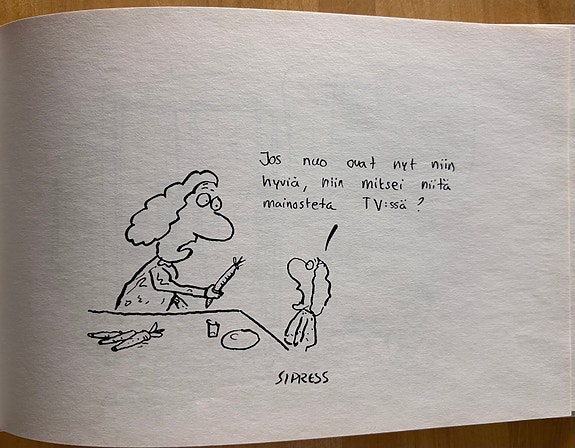 Jos nuo ovat nyt niin
hyviä, niin miksei niitä
mainosteta TV:ssä?
SIPRESS